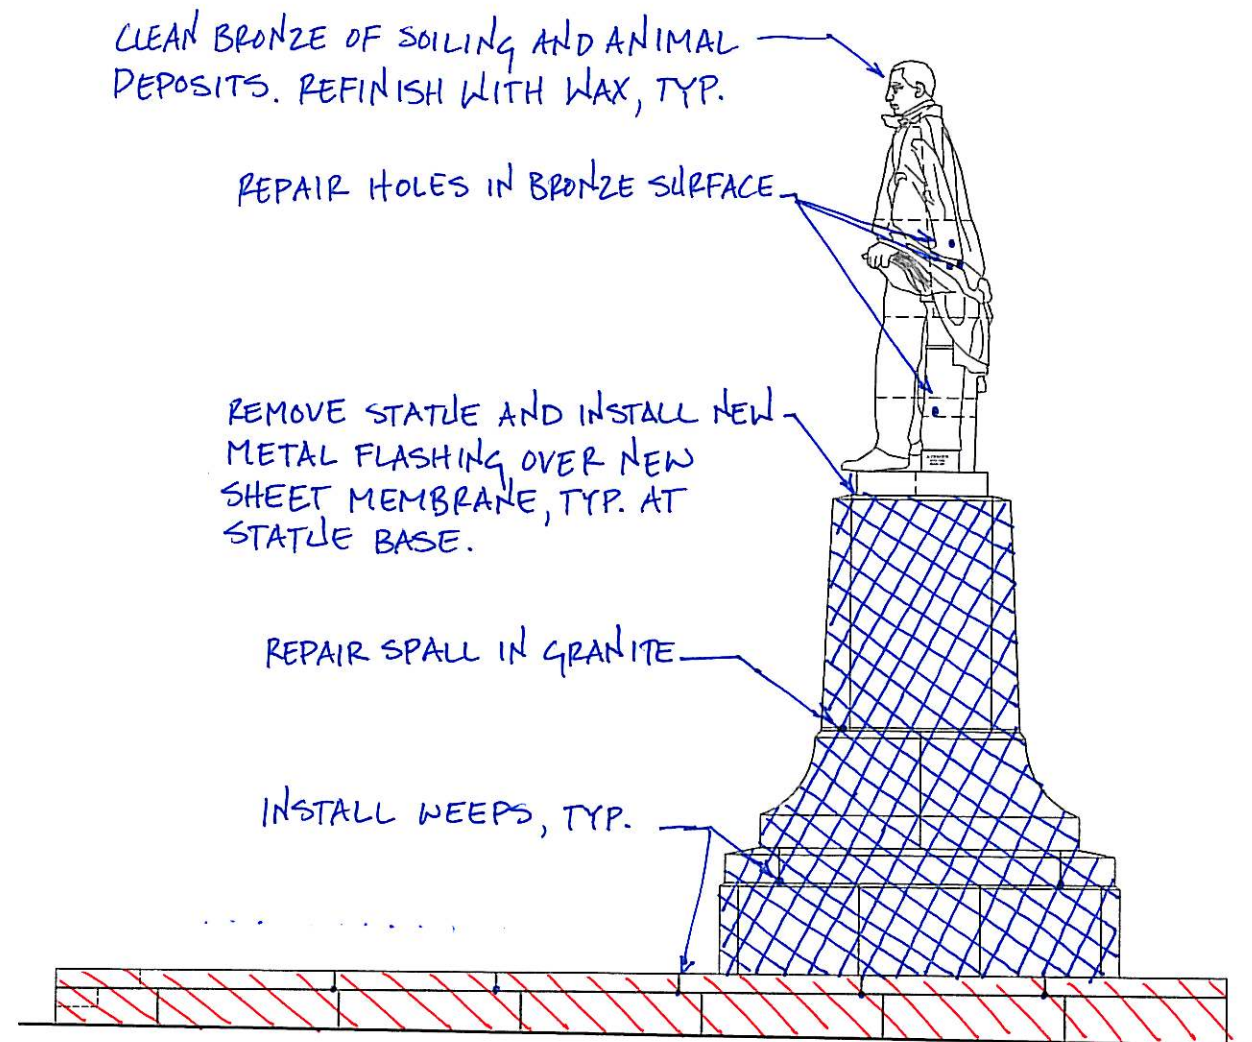 CLEAN BRONZE OF SOILING AND ANIMAL
DEPOSITS. REFINISH WITH WAX, TYP.
REPAIR HOLES IN BRONZE SURFACE
REMOVE STATUE AND INSTALL NEW
METAL FLASHING OVER NEW
SHEET MEMBRANE, TYP. AT
STATUE BASE.
REPAIR SPALL IN GRANITE
INSTALL WEEPS, TYP.